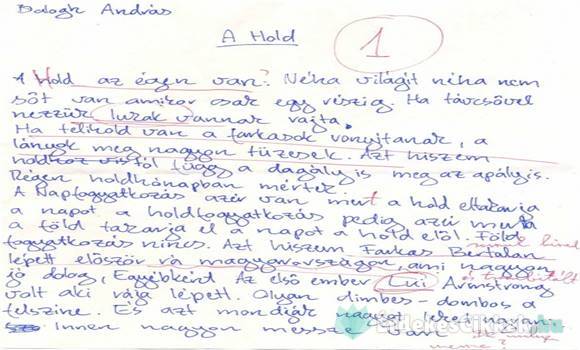 Balogh András
A Hold
1
A Hold az égen van? Néha világít néha nem
sőt van amikor csak egy részig. Ha távcsővel
nezzük lukak vannak rajta.
Ha telihold van a farkasok vonyítanak, a
lányok meg nagyon tüzesek. Azt hiszem
holdtól függ a dagály is meg az apályis.
Régen holdhónapban mértek.
A Napfogyatkozás azér van mert a hold eltakarja
a napot a holdfogyatkozás pedig azér mert
a föld takarja el a napot a hold elöl. Föld
fogyatkozás nincs. Azt hiszem Farkas Bertalan
lépett elöször rá magyarországon, ami nagyon
jó dolog, Egyébként Az első ember Lui Armstrong
volt aki rája lépett. Olyan dimbes-dombos a
felszine. És azt mondják nagyot lehet
Innen nagyon messze van